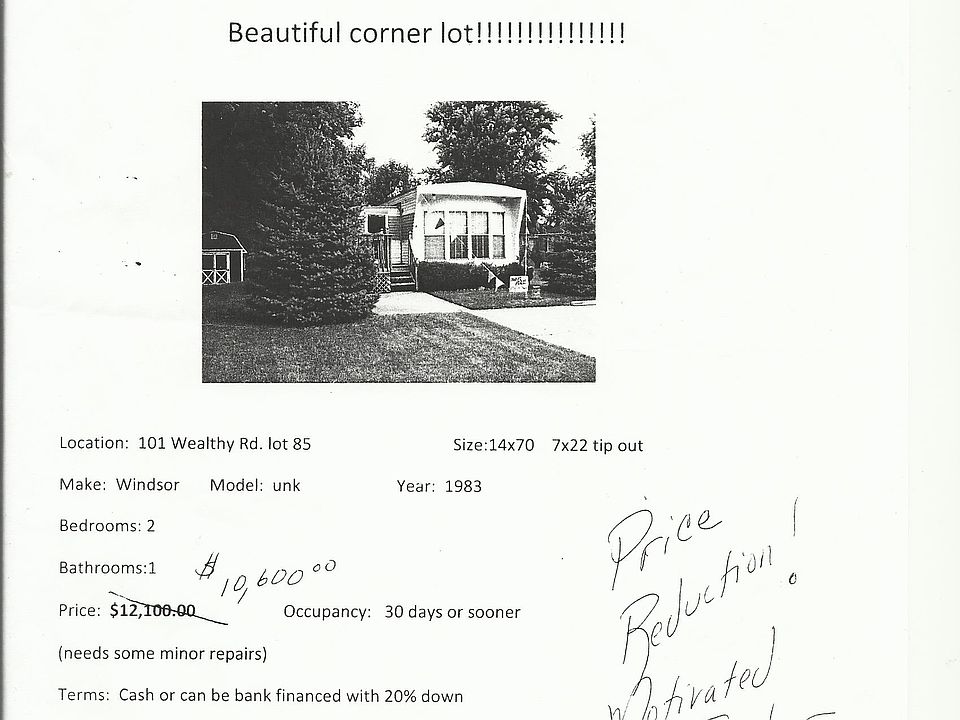 Beautiful corner lot!!!!!!!!!!!!!!!
Location: 101 Wealthy Rd. lot 85 Size:14x70 7x22 tip out
Make: Windsor Model: unk Year: 1983
Bedrooms: 2
Bathrooms:1 $10,600⁰⁰
Price: $12,100.00 Occupancy: 30 days or sooner
(needs some minor repairs)
Terms: Cash or can be bank financed with 20% down
Price
Reduction!
Motivated